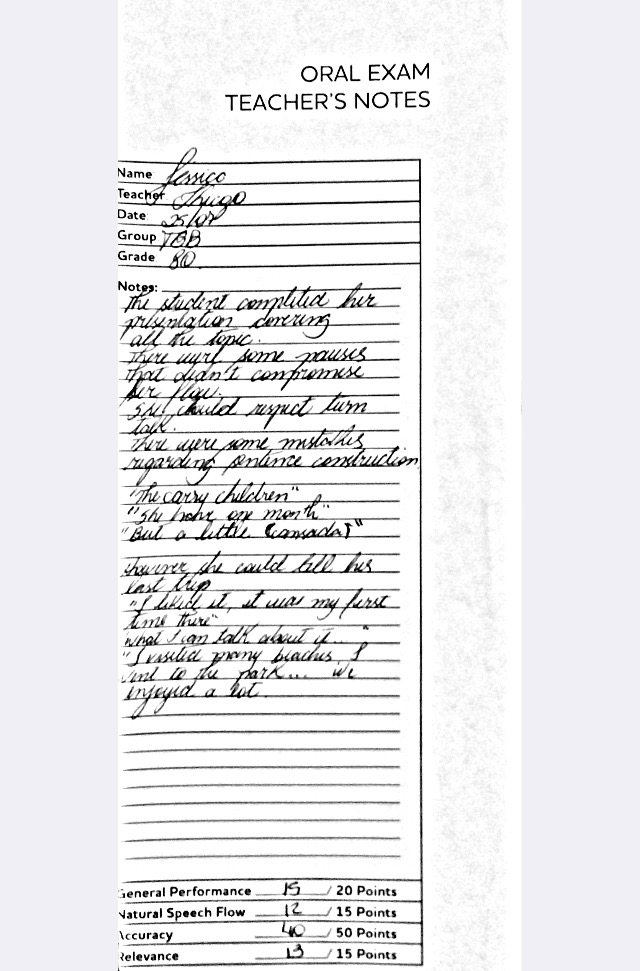 ORAL EXAM
TEACHER'S NOTES
Name Jessica
Teacher Thiago
Date 25/07
Group TBB
Grade: 80
Notes:
The student completed her
presentation covering
all the topic.
There were some pauses
that didn't compromise
her flow.
She could respect turn
talk.
There were some mistakes
regarding sentence construction
"The carry children"
"She have one month"
"But a little (cansada)"
However she could tell his
last trip
"I liked it, it was my first
time there"
"What I can talk about it... "
"I visited many beaches I
went to the park... we
enjoyed a lot.
General Performance 15 / 20 Points
Natural Speech Flow 12 / 15 Points
Accuracy 40 / 50 Points
Relevance 13 / 15 Points